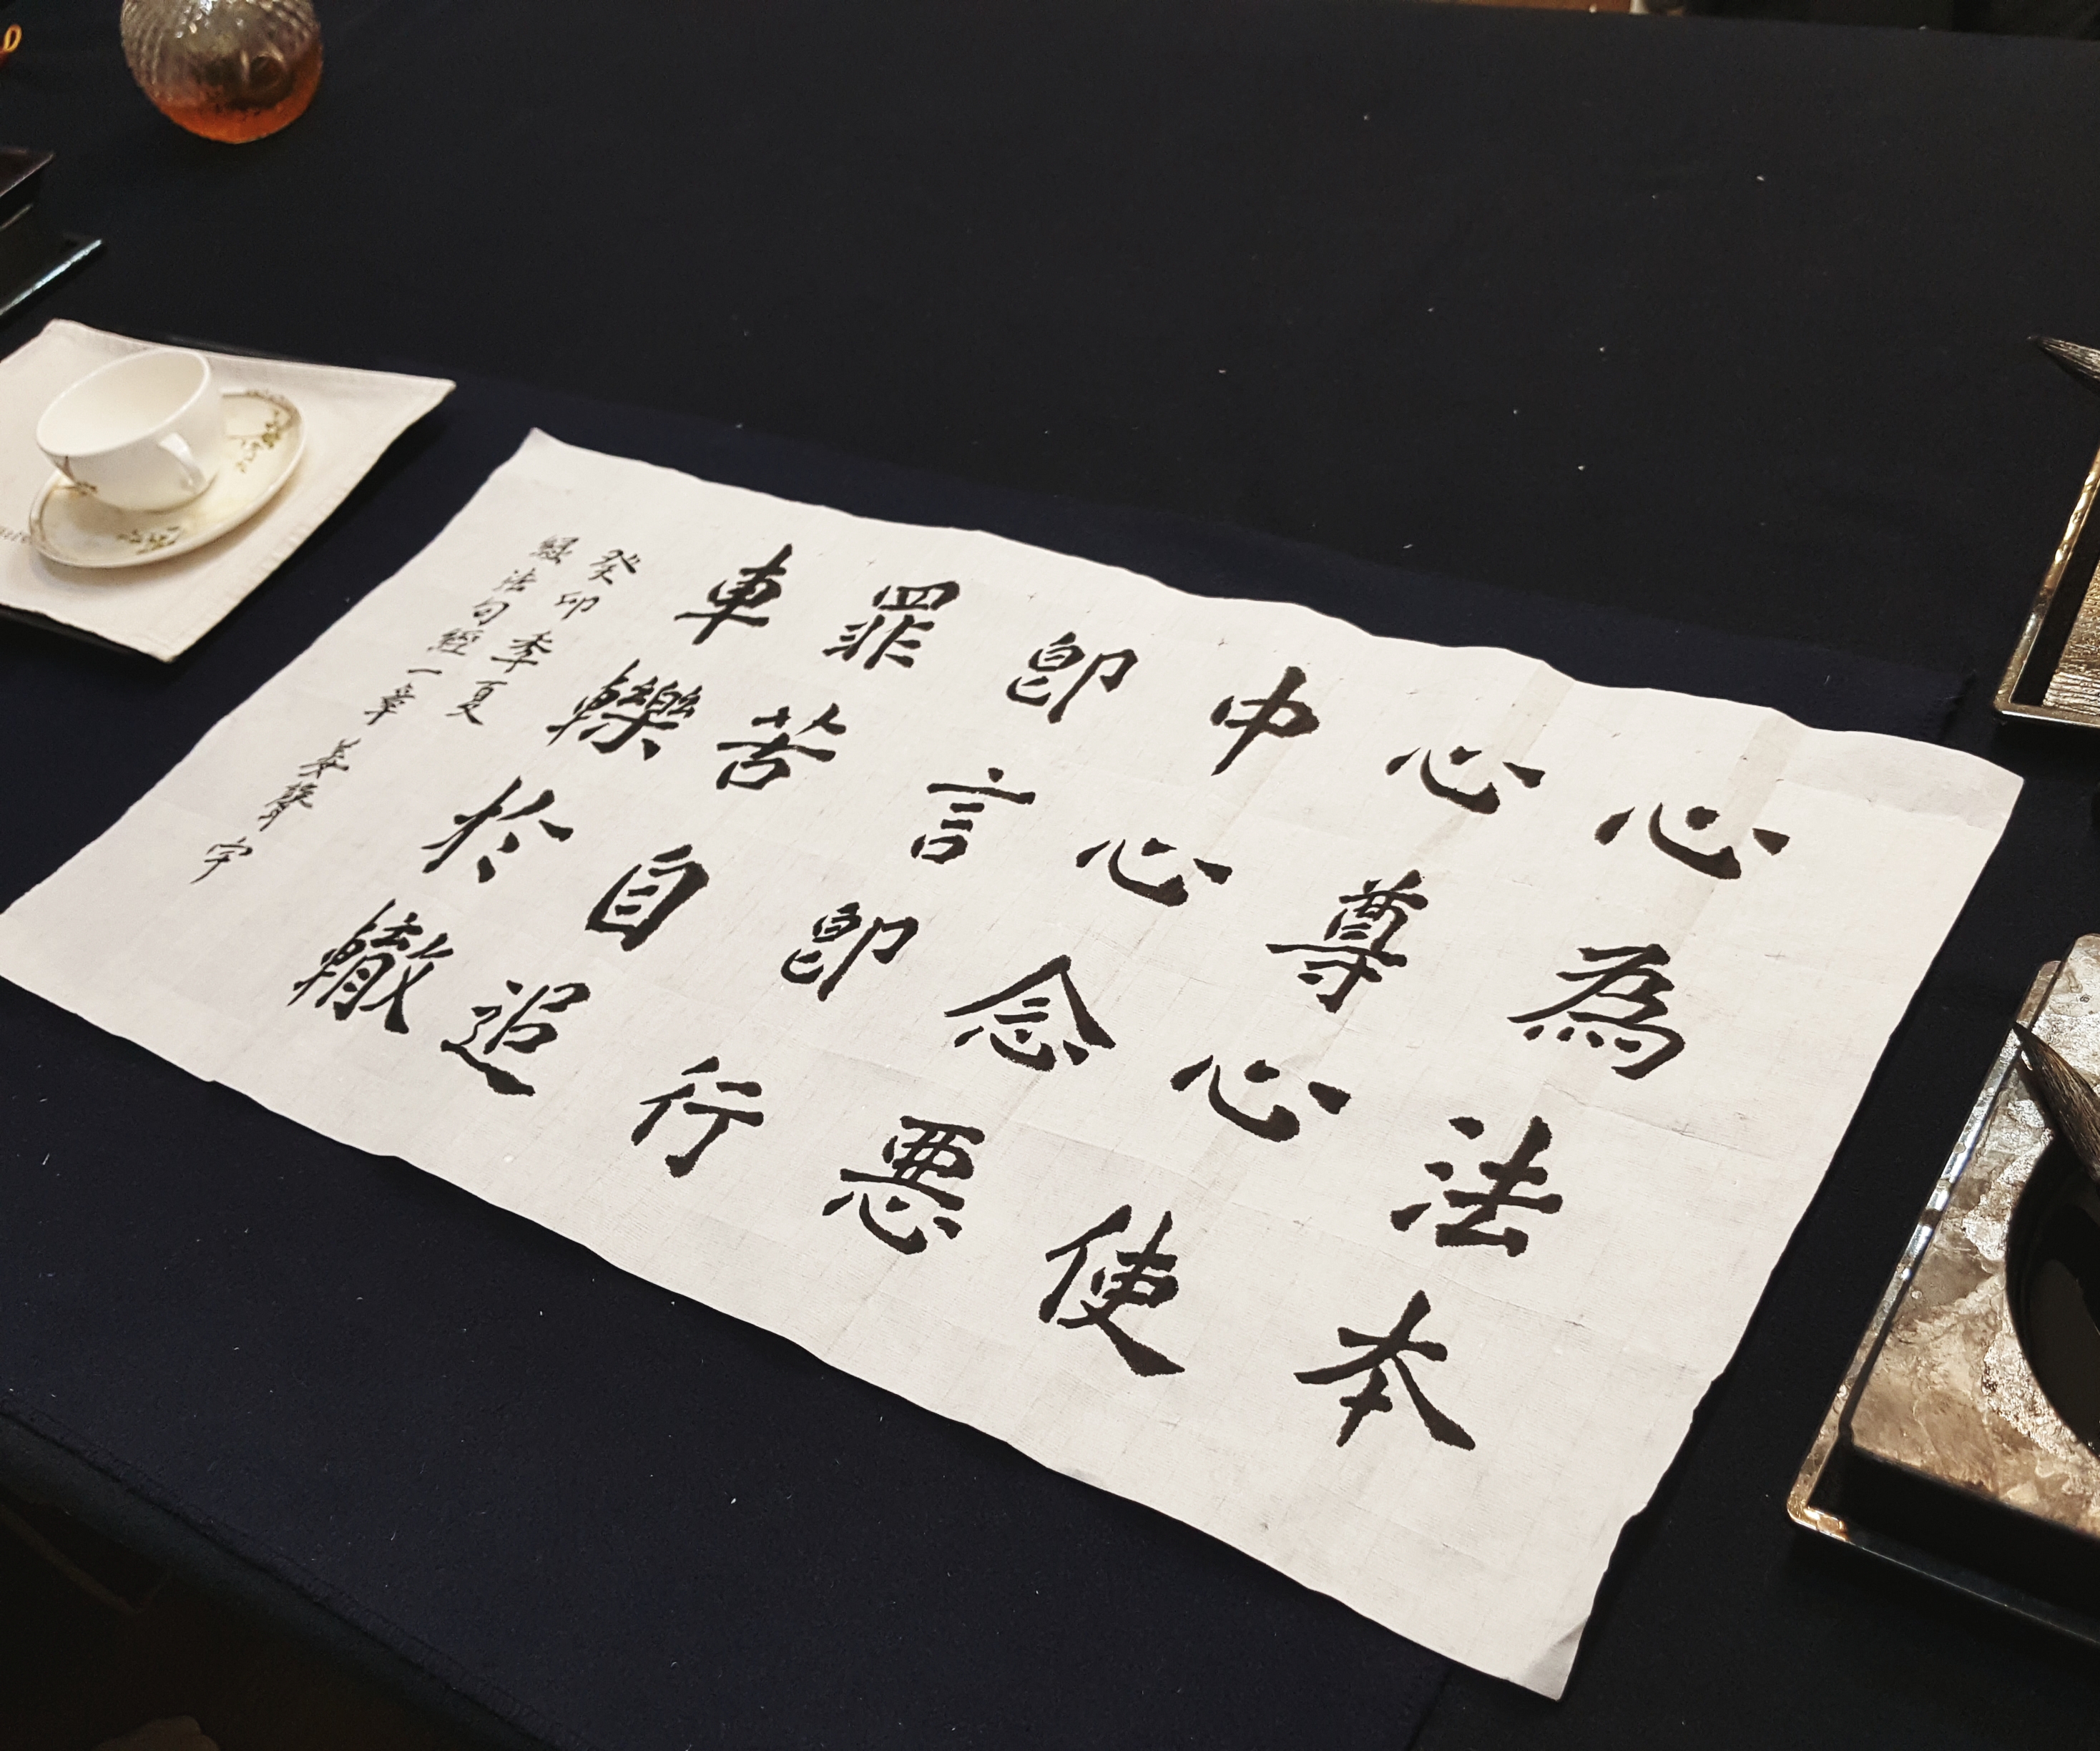 心為法本
心尊心使
中心念悪
卽言卽行
罪苦自追
車轢於轍
癸卯季夏
法句經一章 字